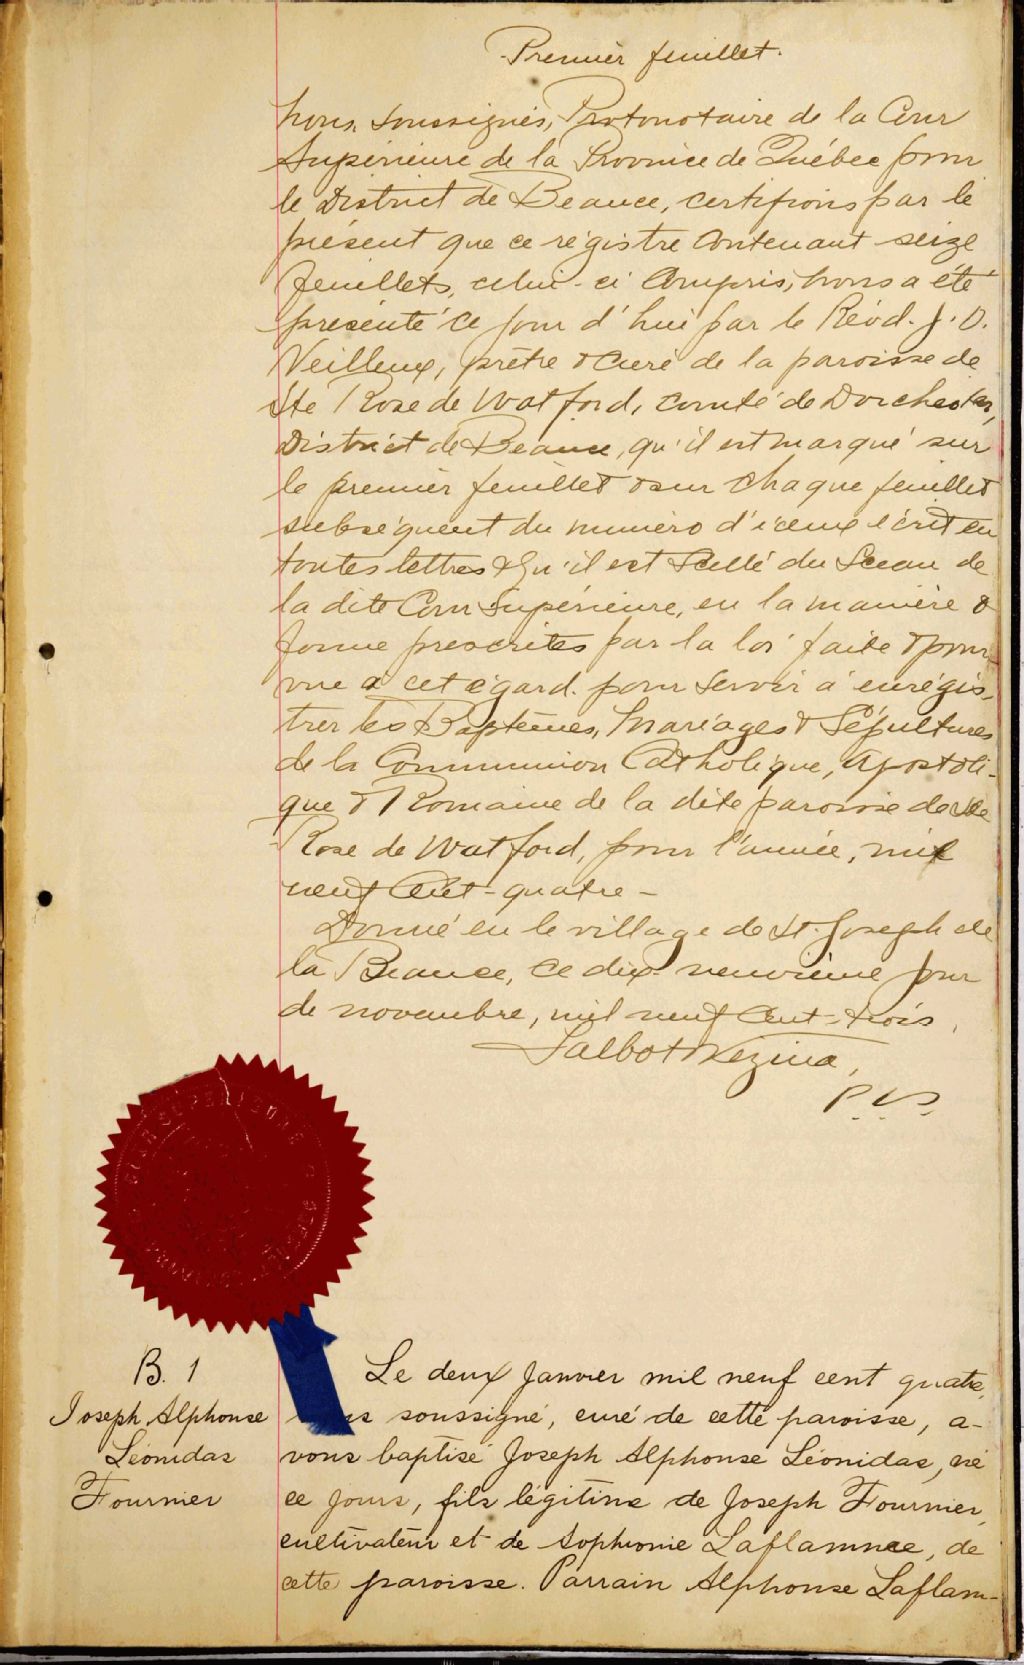 Premier feuillet.
Nous, soussignés, Protonotaire de la Cour
Supérieure de la Province de Québec pour
le District de Beauce, certifions par le
présent que ce régistre contenant seize
feuillets, celui-ci compris, nous a été
présenté ce jour d'hui par le Révd. J. O.
Veilleux, prêtre & curé de la paroisse de
Ste Rose de Watford, comté de Dorchester,
District de Beauce, qu'il est marqué sur
le premier feuillet & sur chaque feuillet
subséquent du numéro d'iceux écrit en
toutes lettres & qu'il est scellé du Sceau de
la dite Cour Supérieure, en la manière &
forme prescrites par la loi faite & pour-
vue à cet égard. pour servir à enrégis-
trer les Baptêmes, Mariages & Sépultures
de la Communion Catholique, Apostoli-
que & Romaine de la dite paroisse de Ste
Rose de Watford, pour l'année, mil
neuf cent-quatre-
Donné en le village de St. Joseph de
la Beauce, ce dix neuvième jour
de novembre, mil neuf cent-trois,
Talbot & Vézina,
P.C.S.
COUR SUPERIEURE
B. 1
Joseph Alphonse
Léonidas
Fournier
Le deux Janvier mil neuf cent quatre,
soussigné, curé de cette paroisse, a-
vons baptisé Joseph Alphonse Léonidas, né
ce jours, fils légitime de Joseph Fournier,
cultivateur et de Sophronie Laflamme, de
cette paroisse. Parrain Alphonse Laflam-